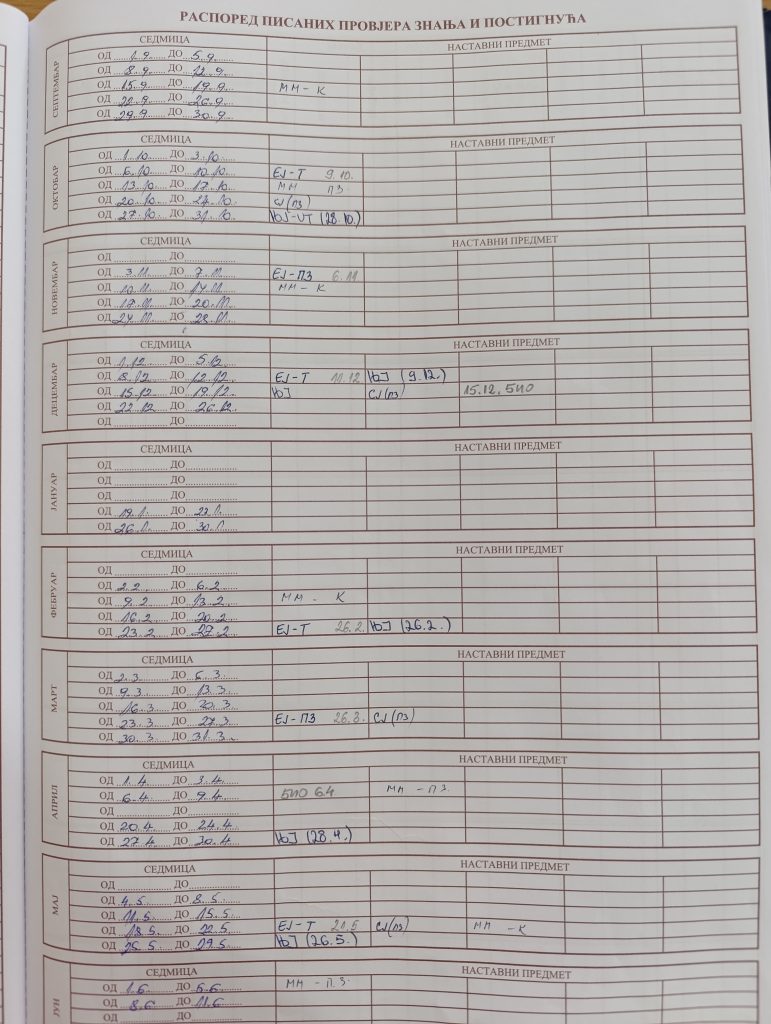 РАСПОРЕД ПИСАНИХ ПРОВЈЕРА ЗНАЊА И ПОСТИГНУЋА
СЕПТЕМБАР
СЕДМИЦА НАСТАВНИ ПРЕДМЕТ
ОД 1.9. ДО 5.9.
ОД 8.9. ДО 12.9.
ОД 15.9. ДО 19.9. ММ - К
ОД 22.9. ДО 26.9.
ОД 29.9. ДО 30.9.
ОКТОБАР
СЕДМИЦА НАСТАВНИ ПРЕДМЕТ
ОД 1.10. ДО 3.10.
ОД 6.10. ДО 10.10. ЕЈ-Т 9.10.
ОД 13.10. ДО 17.10. ММ ПЗ.
ОД 20.10. ДО 24.10. СЈ(ПЗ)
ОД 27.10. ДО 31.10. ЊЈ-УТ (28.10.)
НОВЕМБАР
СЕДМИЦА НАСТАВНИ ПРЕДМЕТ
ОД ДО
ОД 3.11. ДО 7.11. ЕЈ-ПЗ 6.11
ОД 10.11. ДО 14.11. ММ - К
ОД 17.11. ДО 20.11.
ОД 24.11. ДО 28.11.
ДЕЦЕМБАР
СЕДМИЦА НАСТАВНИ ПРЕДМЕТ
ОД 1.12 ДО 5.12.
ОД 8.12 ДО 12.12. ЕЈ-Т 11.12 ЊЈ (9.12.)
ОД 15.12 ДО 19.12. ЊЈ СЈ(ПЗ) 15.12. БИО
ОД 22.12 ДО 26.12.
ОД ДО
ЈАНУАР
СЕДМИЦА НАСТАВНИ ПРЕДМЕТ
ОД ДО
ОД ДО
ОД ДО
ОД 19.1. ДО 23.1.
ОД 26.1. ДО 30.1.
ФЕБРУАР
СЕДМИЦА НАСТАВНИ ПРЕДМЕТ
ОД ДО
ОД 2.2. ДО 6.2
ОД 9.2. ДО 13.2. ММ - К
ОД 16.2. ДО 20.2.
ОД 23.2 ДО 27.2 ЕЈ-Т 26.2. ЊЈ (26.2.)
МАРТ
СЕДМИЦА НАСТАВНИ ПРЕДМЕТ
ОД 2.3. ДО 6.3.
ОД 9.3. ДО 13.3.
ОД 16.3. ДО 20.3.
ОД 23.3 ДО 27.3. ЕЈ-ПЗ 26.3. СЈ(ПЗ)
ОД 30.3. ДО 31.3.
АПРИЛ
СЕДМИЦА НАСТАВНИ ПРЕДМЕТ
ОД 1.4 ДО 3.4
ОД 6.4 ДО 9.4 БИО 6.4 ММ - ПЗ.
ОД ДО
ОД 20.4 ДО 24.4
ОД 27.4 ДО 30.4 ЊЈ (28.4.)
МАЈ
СЕДМИЦА НАСТАВНИ ПРЕДМЕТ
ОД ДО
ОД 4.5. ДО 8.5.
ОД 11.5 ДО 15.5.
ОД 18.5. ДО 22.5 ЕЈ-Т 21.5 СЈ(ПЗ) ММ - К
ОД 25.5. ДО 29.5. ЊЈ (26.5.)
ЈУН
СЕДМИЦА НАСТАВНИ ПРЕДМЕТ
ОД 1.6 ДО 5.6. ММ - П.З.
ОД 8.6 ДО 11.6
ОД ДО